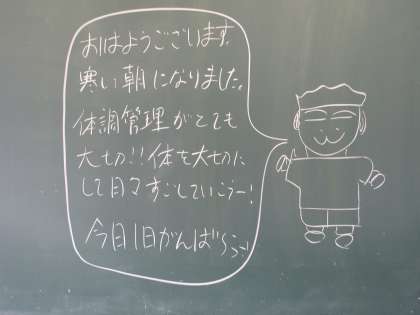 おはようございます。
寒い朝になりました。
体調管理がとても
大切!!体を大切に
して日々すごしていこうー!
今日1日がんばろう!